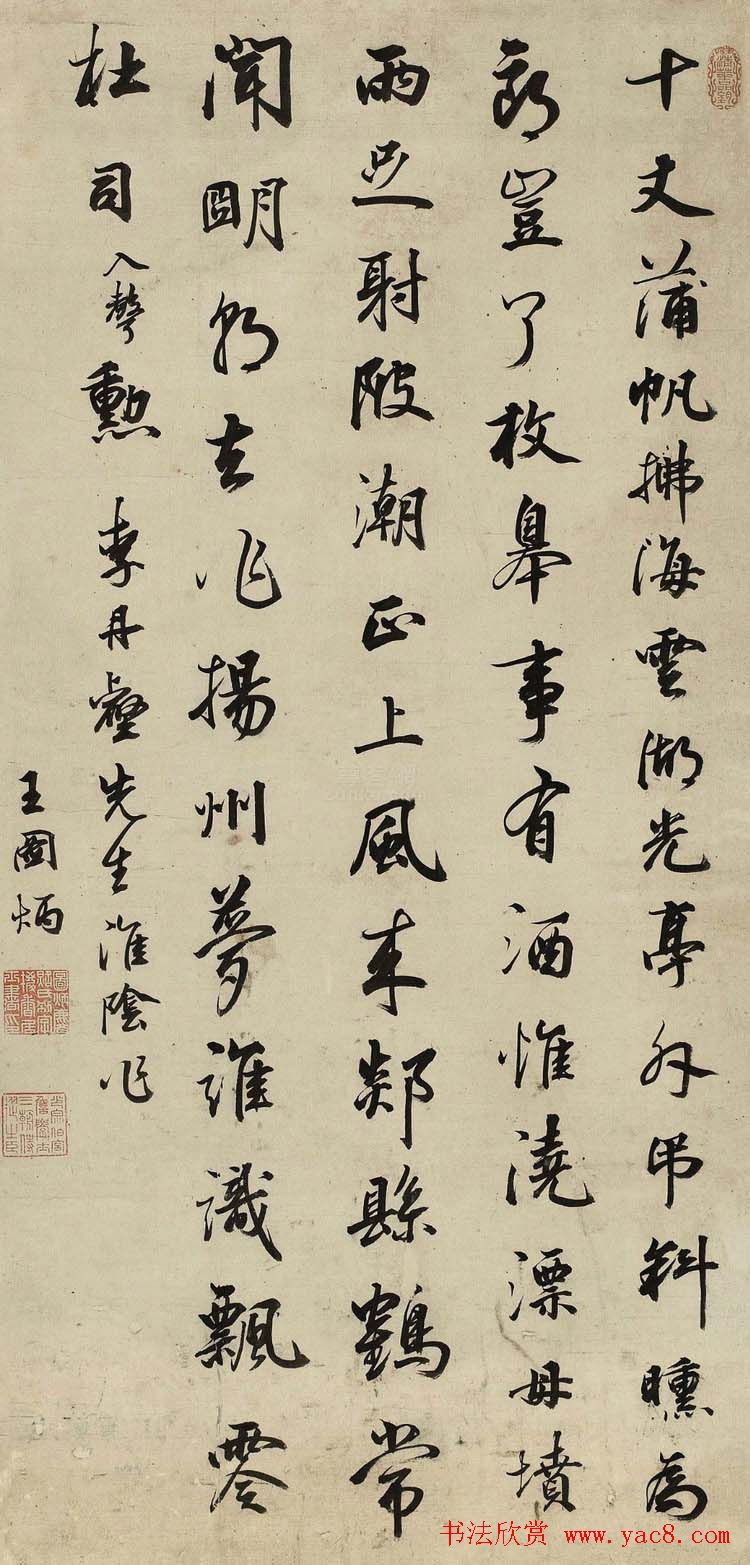 十丈蒲帆拂海雲湖光亭外弔斜曛為
郎豈了枚皋事有酒惟澆漂母墳
雨足射陂潮正上風来郯縣鶴常
聞朙朝去作揚州夢誰識飄零
杜司入聲勳 李丹壑先生淮陰作
王圖炳
书法欣赏 www.yac8.com